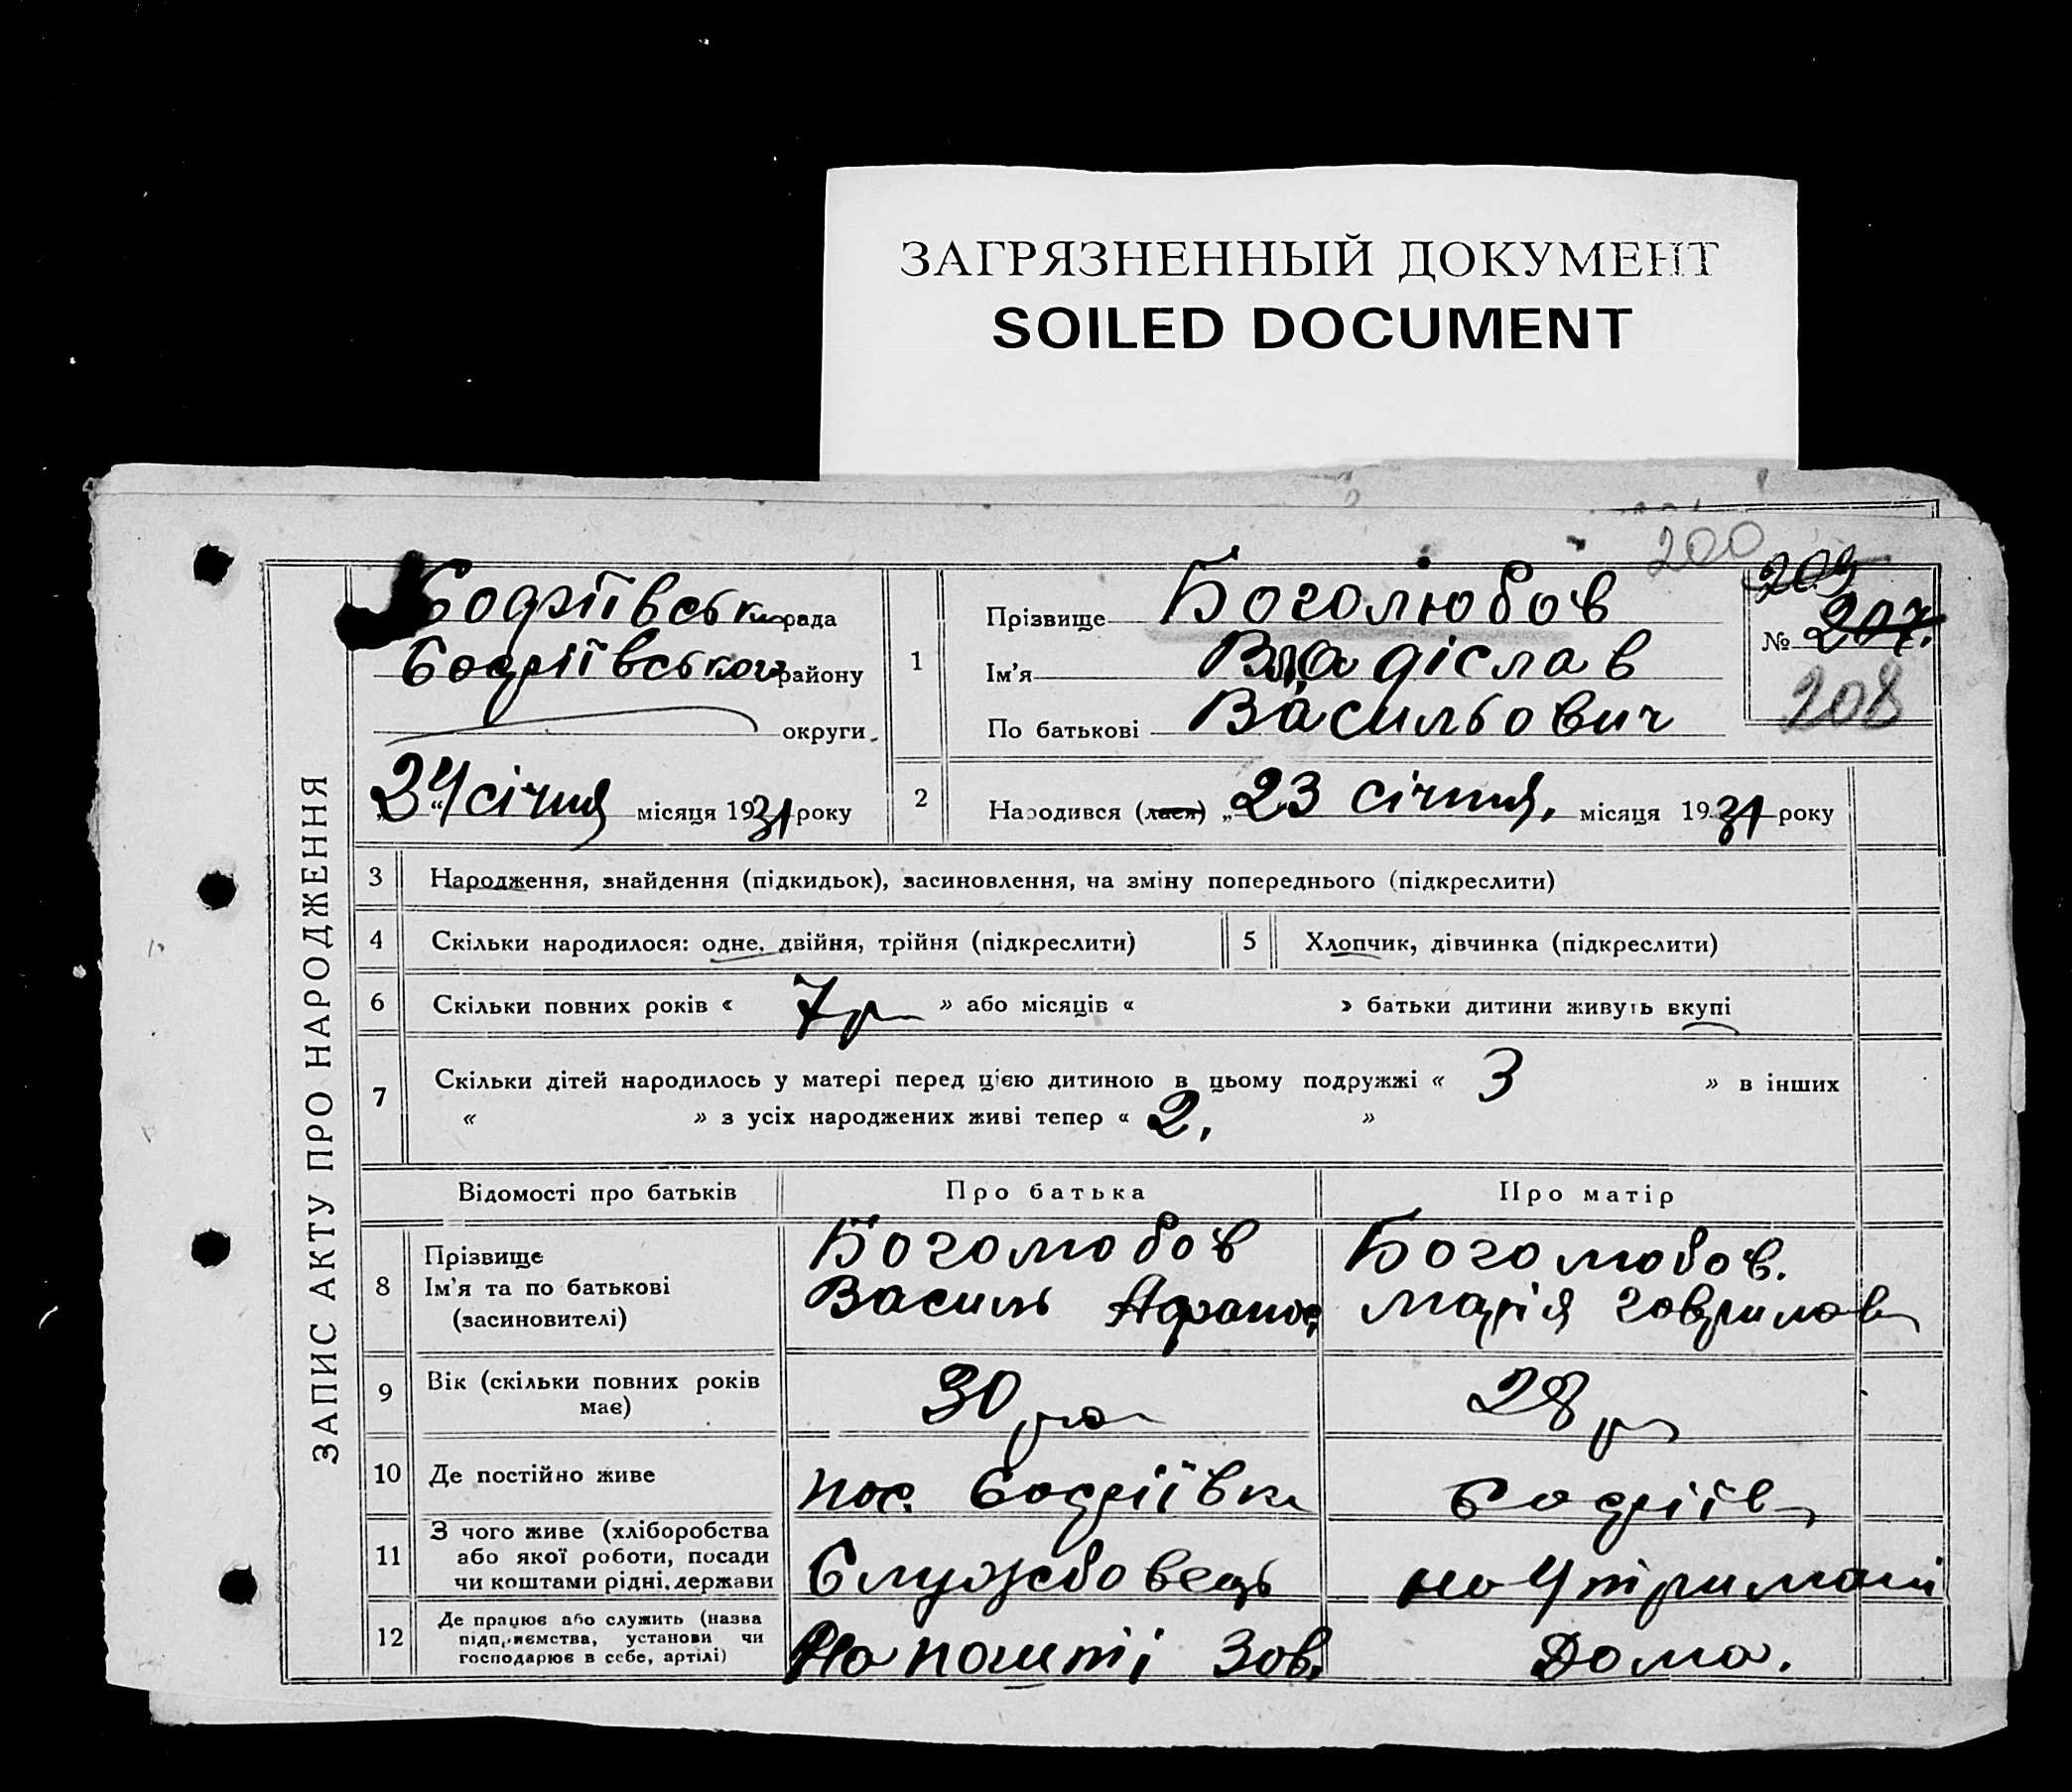 ЗАГРЯЗНЕННЫЙ ДОКУМЕНТ
SOILED DOCUMENT
200
209
ЗАПИС АКТУ ПРО НАРОДЖЕННЯ
рада
району
округи
24 „ “ січня місяця 1931 року
1
Прізвище Боголюбов
Ім’я Владіслав
По батькові Васильович
№ 207.
208
2 Народився (лася) „23 січня, місяця 1931 року
3 Народження, знайдення (підкидьок), засиновлення, на зміну попереднього (підкреслити)
4 Скільки народилося: одне, двійня, трійня (підкреслити) 5 Хлопчик, дівчинка (підкреслити)
6 Скільки повних років « 7 р » або місяців « » батьки дитини живуть вкупі
7 Скільки дітей народилось у матері перед цією дитиною в цьому подружжі « 3 » в інших
« » з усіх народжених живі тепер « 2, »
Відомості про батьків Про батька Про матір
8 Прізвище Боголюбов Боголюбов.
Ім’я та по батькові Василь Афанос, Марія Гаврилов
(засиновителі)
9 Вік (скільки повних років 30 28 р
має)
10 Де постійно живе пос.
11 З чого живе (хліборобства
або якої роботи, посади Службовець на утримані
чи коштами рідні, держави
12 Де працює або служить (назва
підприємства, установи чи На пошті Зав. Дома.
господарює в себе, артілі)